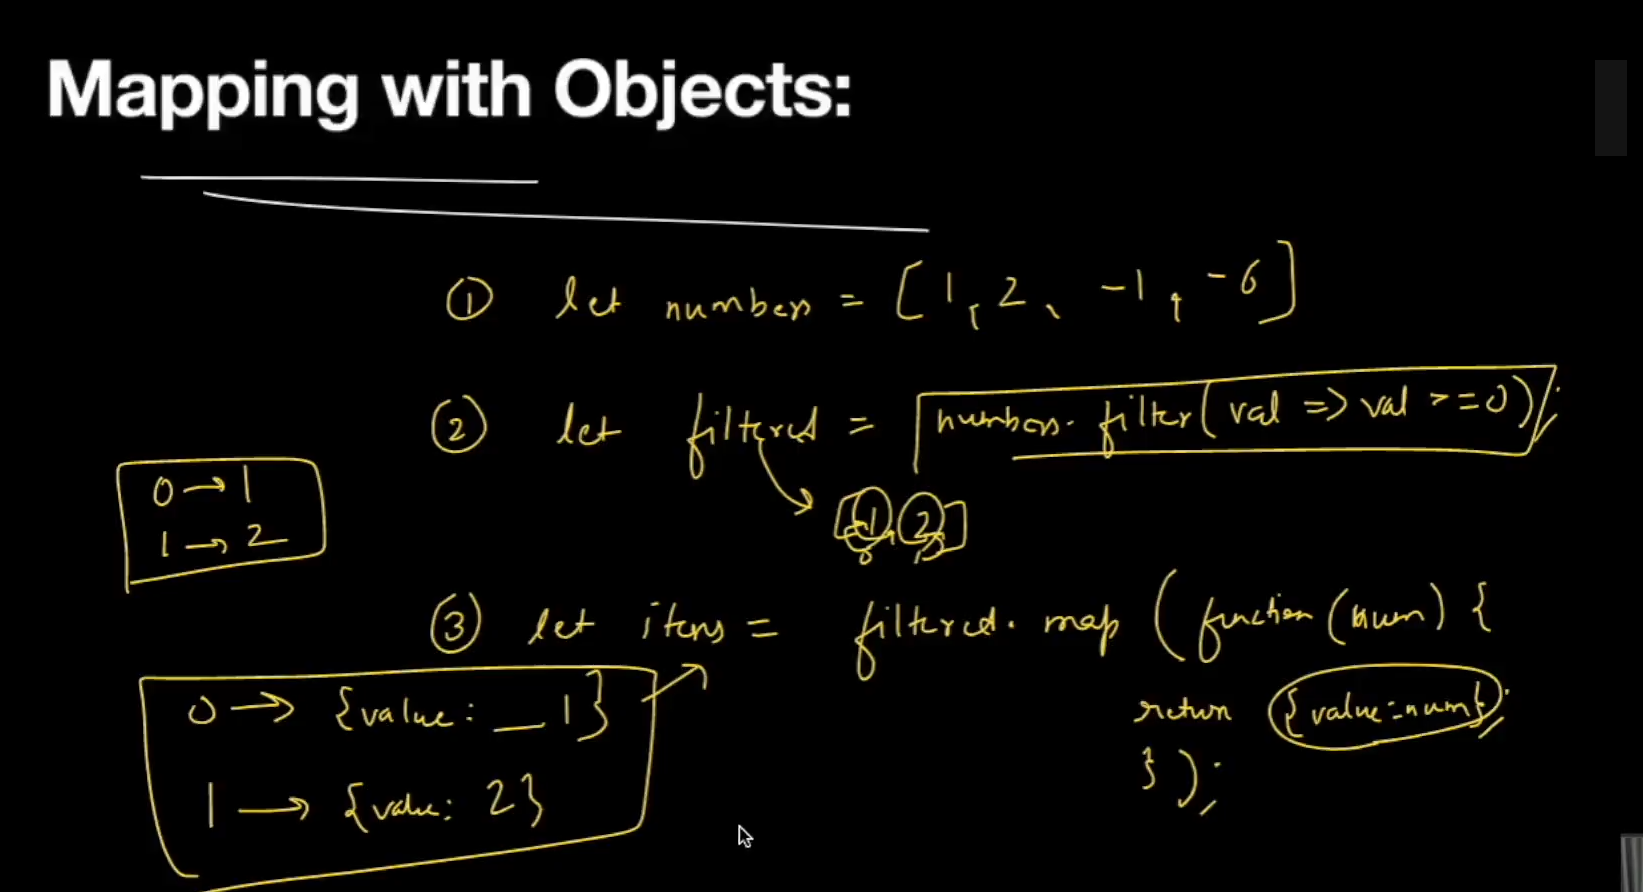 Mapping with Objects:
① let numbers = [1, 2, -1, -6]
② let filtered = numbers.filter(val => val >=0);
0 → 1
1 → 2
[1, 2]
0 1
③ let items = filtered.map(function(num) {
return {value:num};
});
0 → {value: _ 1}
1 → {value: 2}